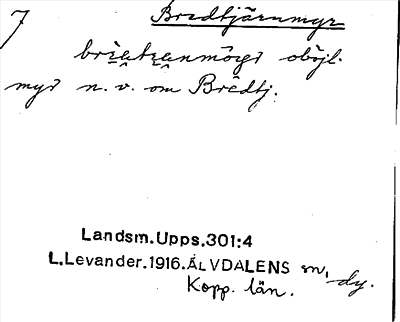 7 Bredtjärnmyr
obōjl.
myr n. v. om Bredtj.
Landsm.Upps.301:4
L.Levander.1916.ÄLVDALENS sn, dy.
Kopp. län.